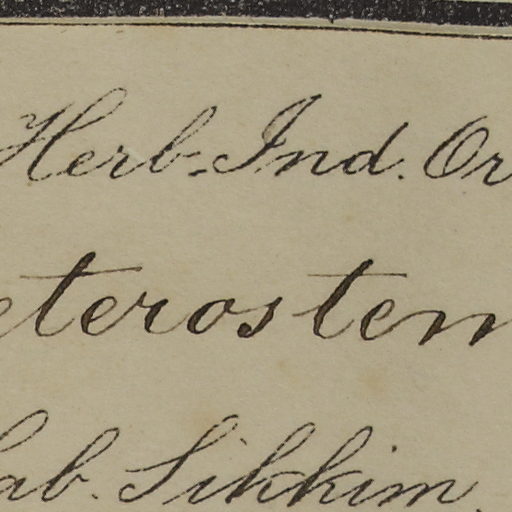 Herb. Ind. Or
eterostem
ab. Sikkim.